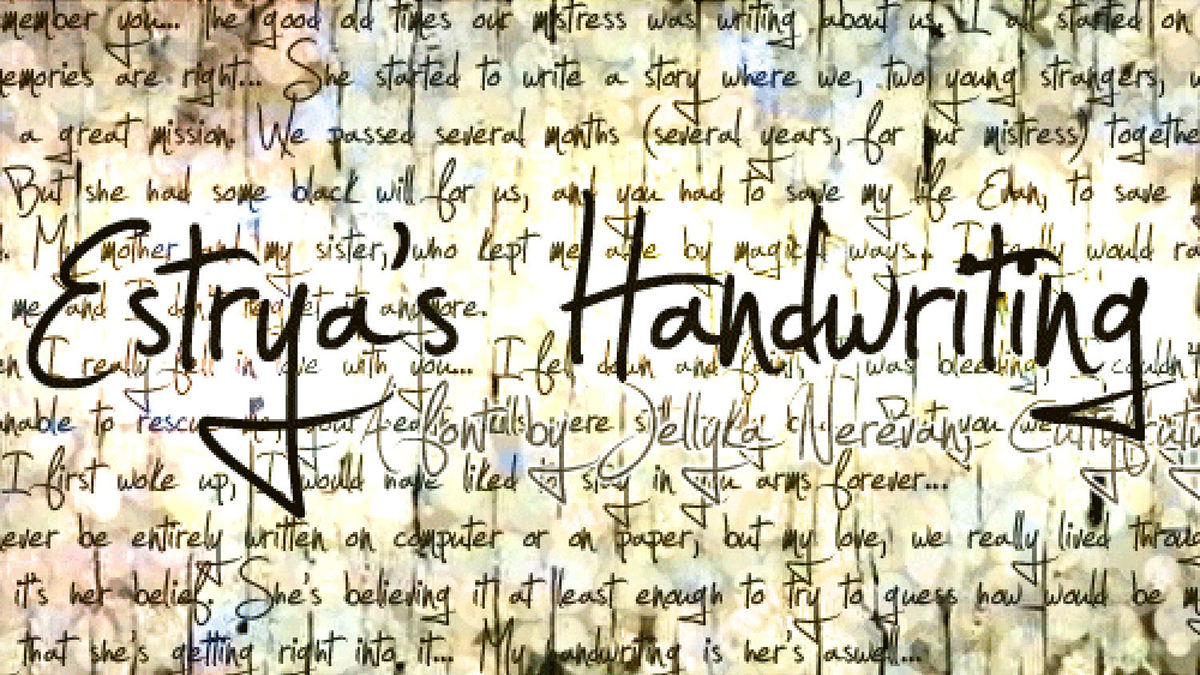 member you... The good old times our mistress was writing about us. I all started on
emories are right... She started to write a story where we, two young strangers,
a great mission. We passed several months (several years, for our mistress) togethe
But she had some black will for us, and you had to save my life Evan, to save
. My mother and my sister, who kept me alive by magical ways... I really would ra
Estrya's Handwriting
me and I don't regret it anymore.
I really fell in love with you... I fell down and was bleeding, I couldn't
nable to rescue
A font by Jellyka Nerevan,
I first woke up, I would have liked to stay in you arms forever...
ever be entirely written on computer or on paper, but my love, we really lived throu
it's her belief. She's believing it at least enough to try to guess how would be m
that she's getting right into it... My handwriting is her's aswell...